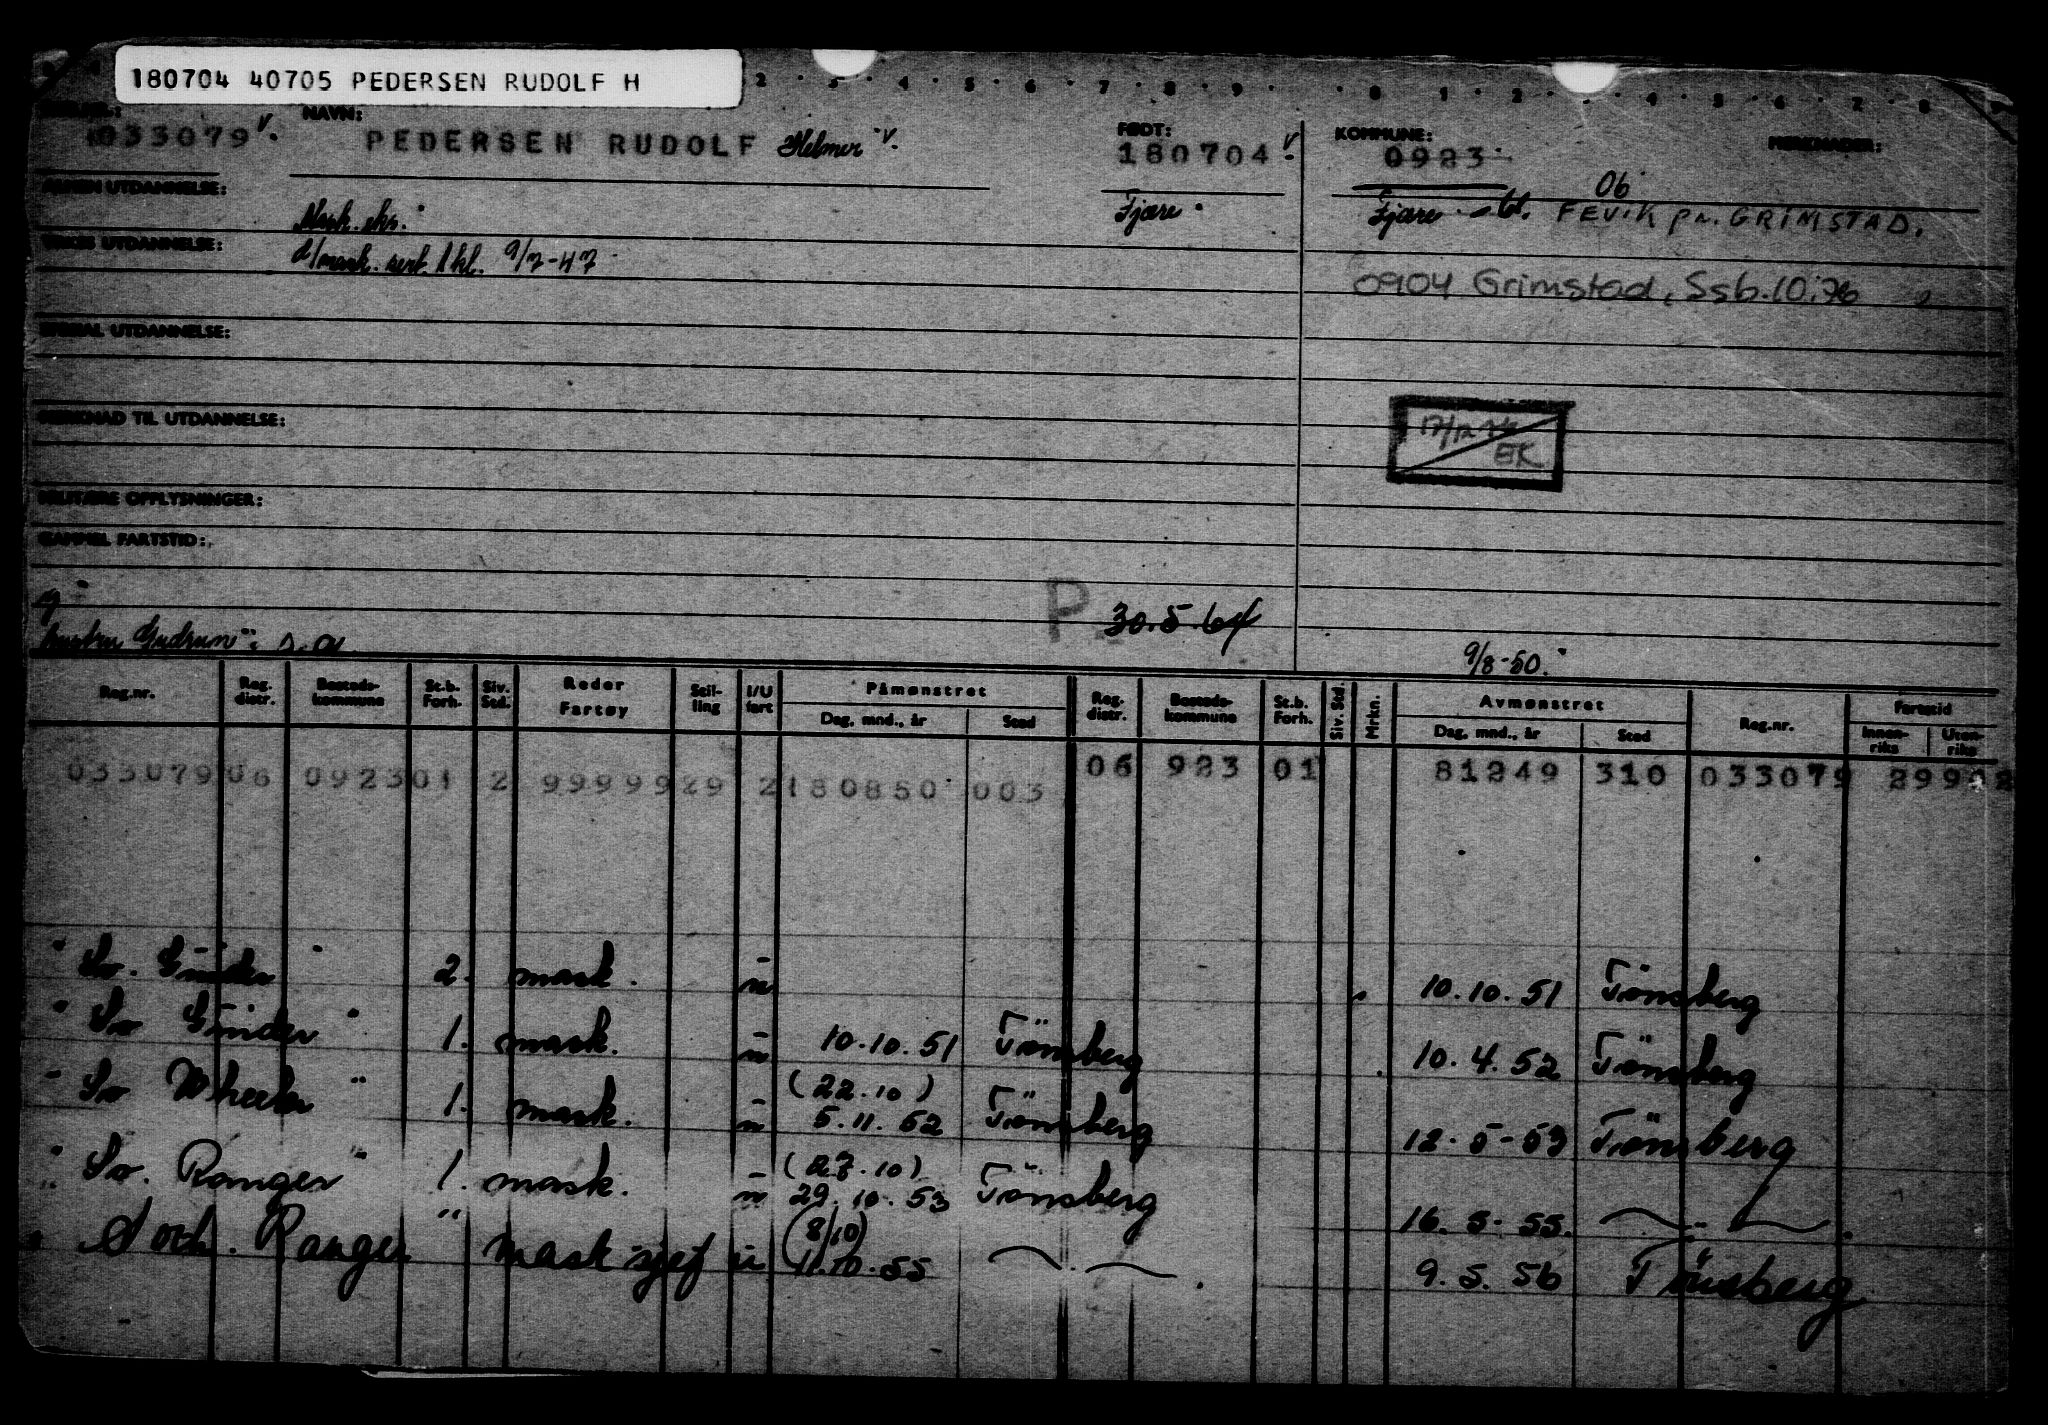 180704 40705 PEDERSEN RUDOLF H
NAVN: FØDT: KOMMUNE: MERKNADER:
033079 v. PEDERSEN RUDOLF Helmer v. 180704 v. 0923
ALMEN UTDANNELSE: Mask. sks. Fjære Fjære 06 FEVIK pr. GRIMSTAD.
YRKES UTDANNELSE: d/mask. sert. 1 kl. 9/7-47
0904 Grimstad, Ssb.10.76
SPESIAL UTDANNELSE:
MERKNAD TIL UTDANNELSE:
EK
MILITÆRE OPPLYSNINGER:
GAMMEL FARTSTID:
g
P. 30.5.64
Gudrun 9/8-50.
Reg.nr. Reg. distr. Bosteds-kommune St.b. Forh. Siv. Std. Reder Fartøy Stil-ling I/U fart Påmønstret Dag, mnd., år Sted Reg. distr. Bosteds-kommune St.b. Forh. Siv. Std. Mrkn. Avmønstret Dag, mnd., år Sted Reg.nr. Fartstid Innen-riks Uten-riks
033079 06 0923 01 2 99999 29 2 180850 003 06 923 01 81249 310 033079
" So. Guider " 2. mask. u 10.10.51 Tønsberg
" So Guider " 1. mask. u 10.10.51 Tønsberg 10.4.52 Tønsberg
" So Wheeler " 1. mask. u (22.10) 5.11.52 Tønsberg 12-5-53 Tønsberg
" So. Ranger " 1. mask. u (27.10) 29.10.53 Tønsberg 16.5-55.
" Soth. Ranger " mask sjef u (8/10) 11.10.55 9.5.56 Tønsberg